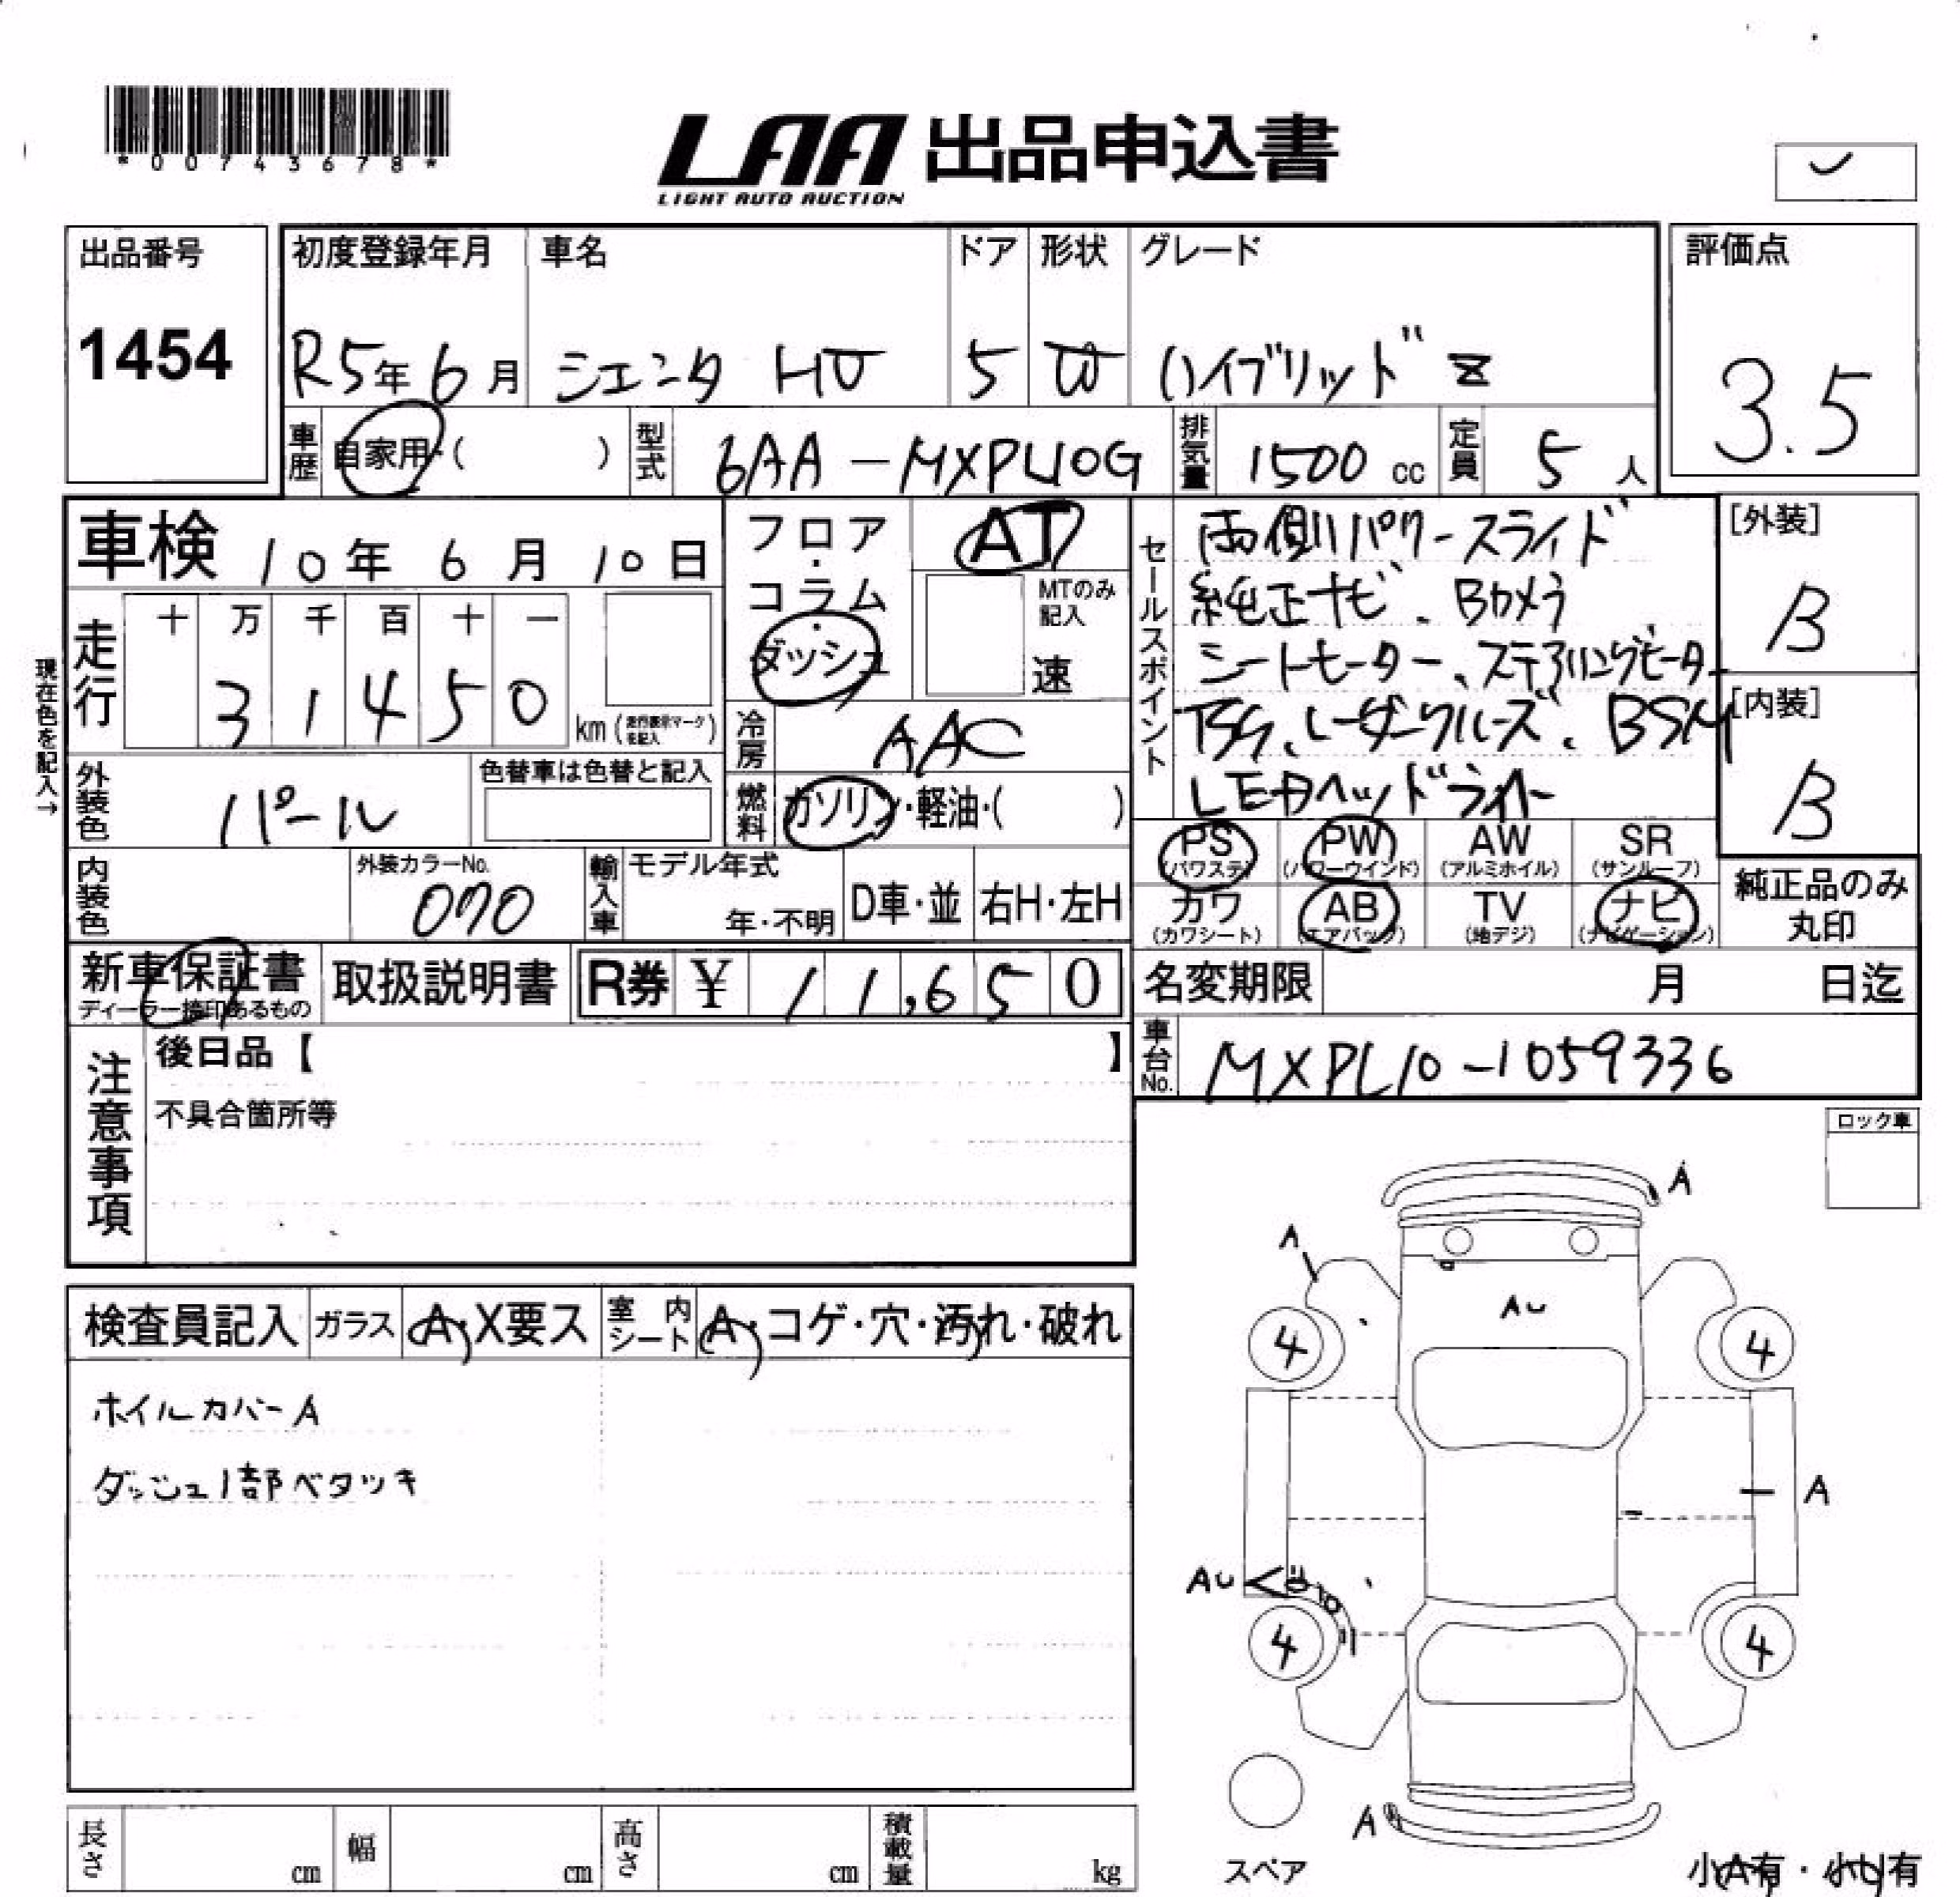 *00743678*
LAA 出品申込書
LIGHT AUTO AUCTION
出品番号
1454
初度登録年月 車名 ドア 形状 グレード
R5年6月 シエンタ HV 5 W ハイブリッド Z
評価点
3.5
車歴 自家用・( ) 型式 6AA-MXPL10G 排気量 1500 cc 定員 5 人
車検 10年 6月 10日
現在色を記入→
走行 十 万 千 百 十 一
3 1 4 5 0 km (走行表示マークを記入)
フロア・コラム・ダッシュ
AT
MTのみ記入
速
冷房 AAC
燃料 ガソリン・軽油・( )
外装色 パール 色替車は色替と記入
内装色 外装カラーNo. 070
輸入車 モデル年式 年・不明 D車・並 右H・左H
セールスポイント
両側パワースライド
純正ナビ、Bカメラ
シートヒーター、ステアリングヒーター
TSS、レーダークルーズ、BSM
LEDヘッドライト
[外装]
B
[内装]
B
PS (パワステ) PW (パワーウインド) AW (アルミホイル) SR (サンルーフ)
カワ (カワシート) AB (エアバック) TV (地デジ) ナビ (ナビゲーション)
純正品のみ
丸印
新車保証書
ディーラー捺印あるもの
取扱説明書 R券 ¥ 1 1,6 5 0
名変期限 月 日迄
車台No. MXPL10-1059336
注意事項
後日品【 】
不具合箇所等
ロック車
検査員記入 ガラス A・X要ス 室内シート A・コゲ・穴・汚れ・破れ
ホイルカバーA
ダッシュ1部ベタツキ
A
A
AU
4 4
A
AU
4 4
A
スペア
小A有・小U有
長さ cm 幅 cm 高さ cm 積載量 kg